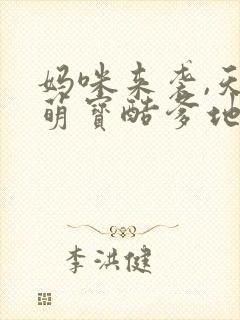 妈咪来袭,天
萌宝酷爹地
李洪健